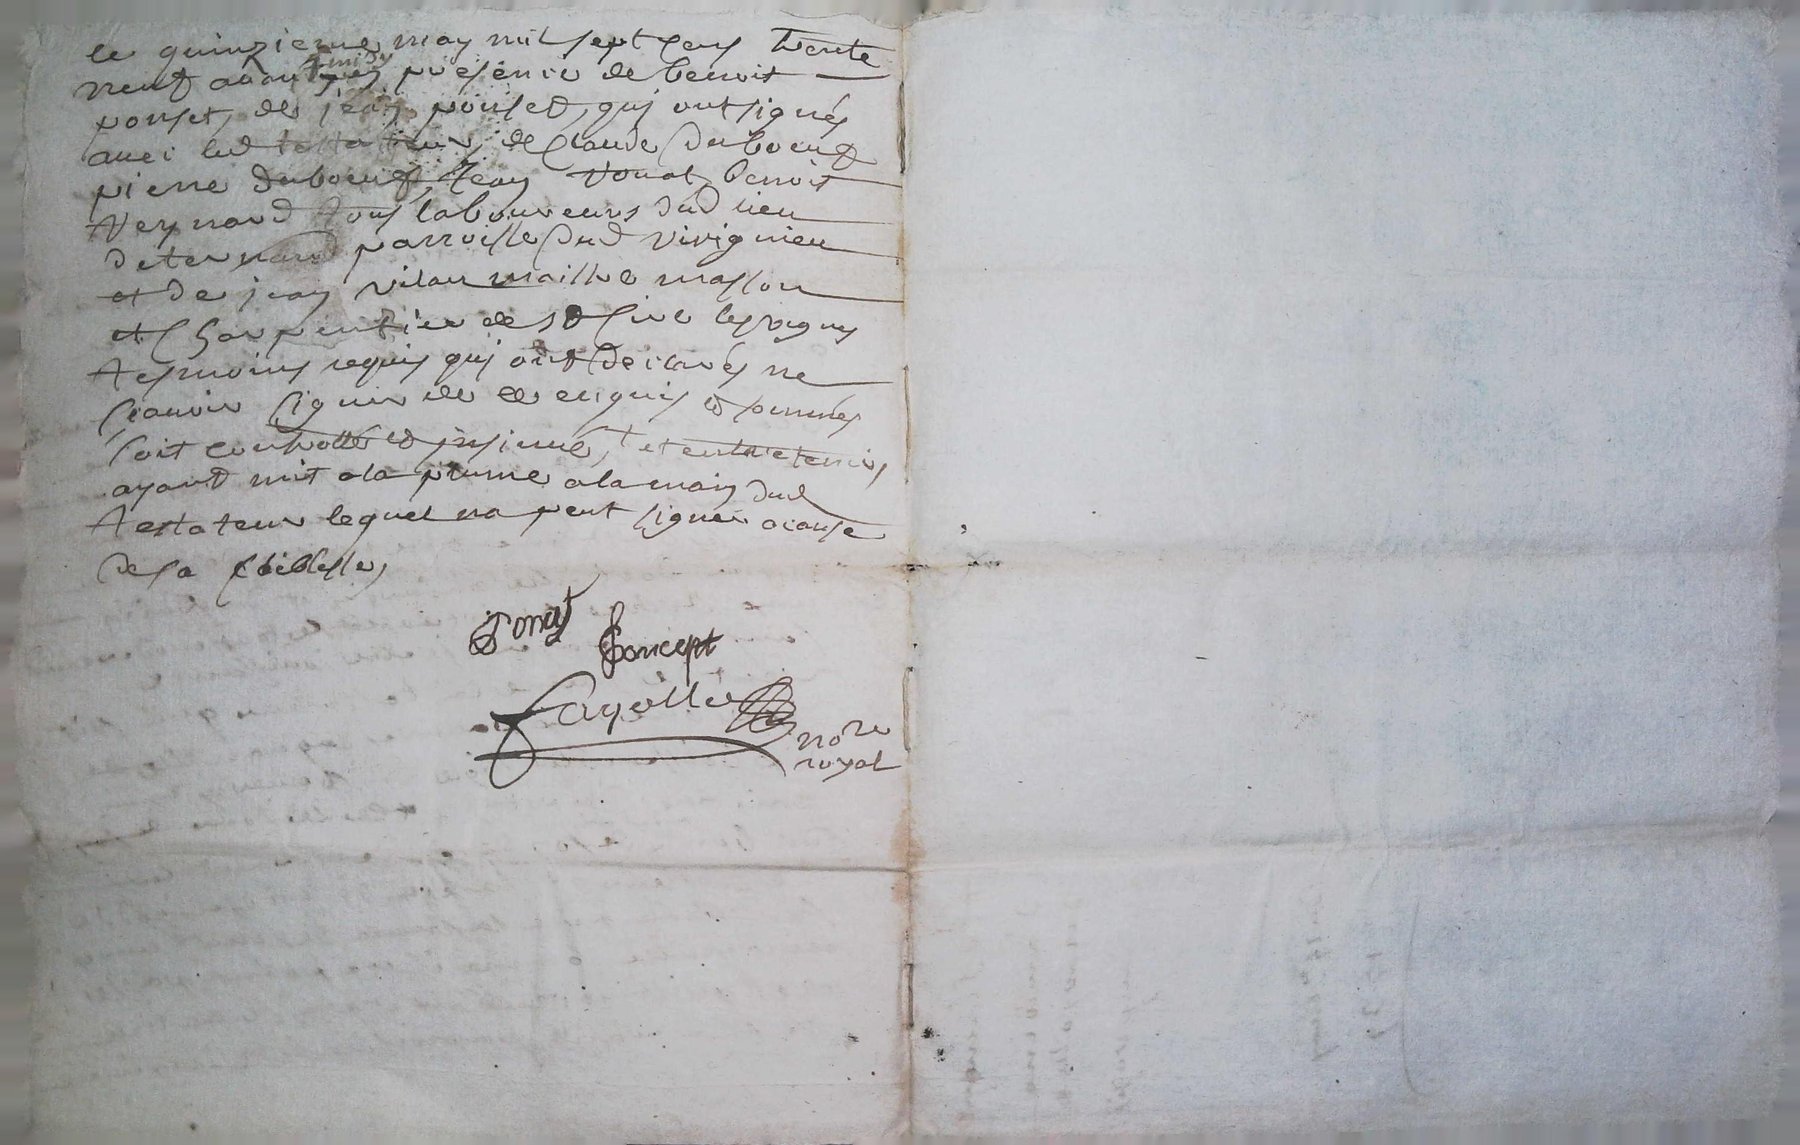 le quinzieme may mil sept cens trente
neuf avant midy presence de benoit
ponset, de jean ponset, qui ont signés
avec led testateur de Claude Duboeuf
pierre duboeuf, Jean benoit
Veynard tous laboureurs dud lieu
de parroisse dud Virignieu
et de jean maitre masson
et Charpentier de st Cire les vignes
tesmoins requis qui ont declarés ne
sçavoir signer de ce enquis et sommés
soit controllé et jnsinué,
ayant mit la plume a la main dud
testateur lequel na peut signer a cause
de sa foiblesse,
Poncept
fayolle
nore
royal